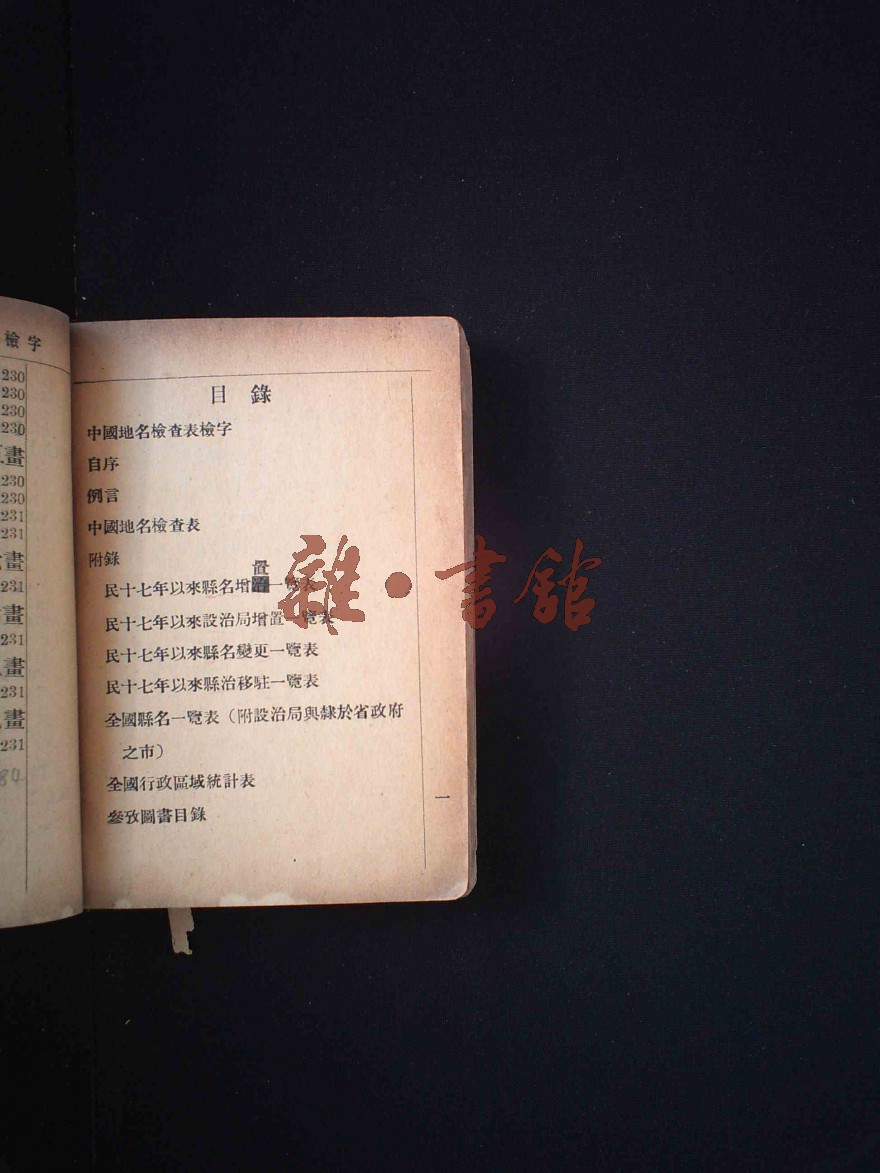 檢字
230
230
230
230
畫
230
230
231
231
畫
231
畫
231
畫
231
畫
231
84
目錄
中國地名檢查表檢字
自序
例言
中國地名檢查表
附錄
置
民十七年以來縣名增治一覽表
民十七年以來設治局增置一覽表
民十七年以來縣名變更一覽表
民十七年以來縣治移駐一覽表
全國縣名一覽表（附設治局與隸於省政府
之市）
全國行政區域統計表
參攷圖書目錄
一
雜·書館